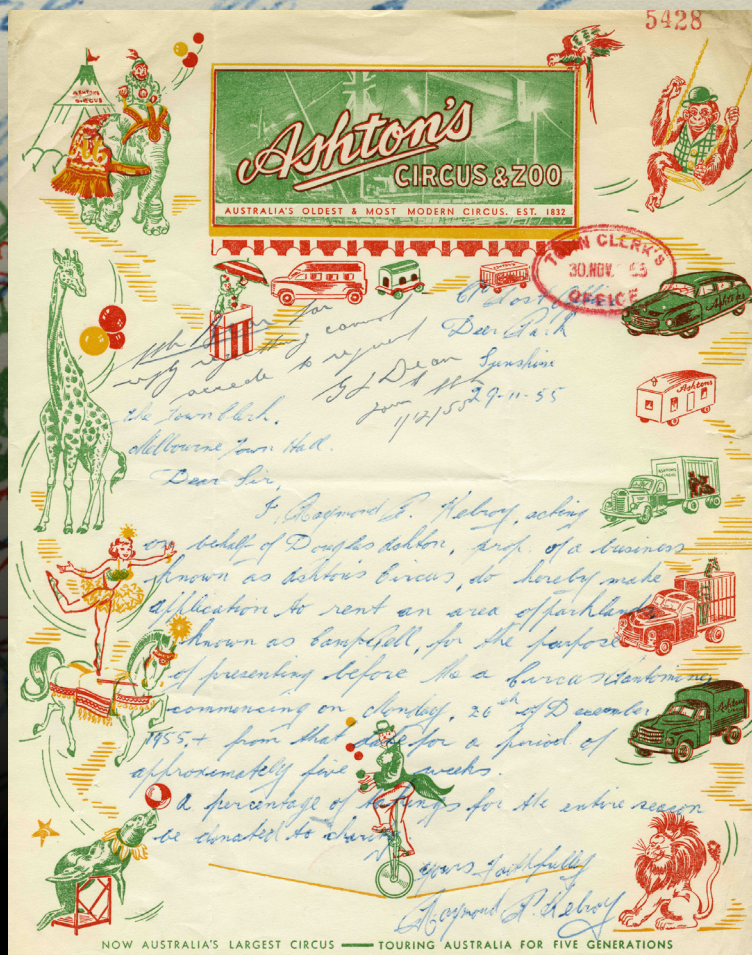 5428
ASHTON'S
CIRCUS
Ashton's
CIRCUS & ZOO
AUSTRALIA'S OLDEST & MOST MODERN CIRCUS. EST. 1832
TOWN CLERK'S
30. NOV. 55
OFFICE
Post Office
Deer Park
Sunshine
29-11-55
for
reply regretting cannot
accede to request
Town Clerk
1/12/55
the Town Clerk.
Melbourne Town Hall.
Dear Sir,
I, Raymond P. acting
on behalf of Douglas Ashton, prop. of a business
known as Ashton's Circus, do hereby make
application to rent an area of parklands
known as for the purpose
of presenting before the a Circus Pantomime,
commencing on Monday, 26th of December
1955, + from that date for a period of
approximately five weeks.
A percentage of takings for the entire season
be donated to charity
Yours Faithfully
Raymond P.
Ashtons
Ashtons
Ashtons
NOW AUSTRALIA'S LARGEST CIRCUS — TOURING AUSTRALIA FOR FIVE GENERATIONS